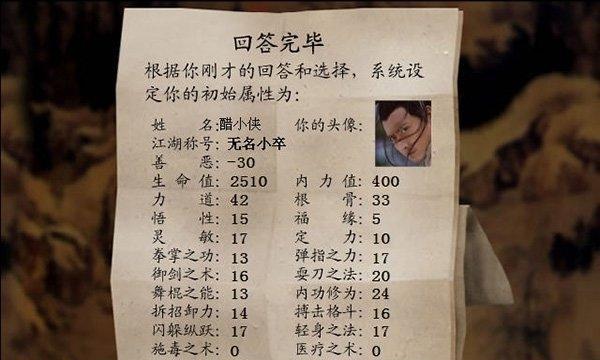 回答完毕
根据你刚才的回答和选择，系统设
定你的初始属性为：
姓名：醋小侠 你的头像：
江湖称号：无名小卒
善恶：-30
生命值：2510 内力值：400
力道：42 根骨：33
悟性：15 福缘：5
灵敏：17 定力：10
拳掌之功：13 弹指之力：17
御剑之术：16 耍刀之法：20
舞棍之能：13 内功修为：24
拆招卸力：14 搏击格斗：16
闪躲纵跃：17 轻身之法：17
施毒之术：0 医疗之术：0